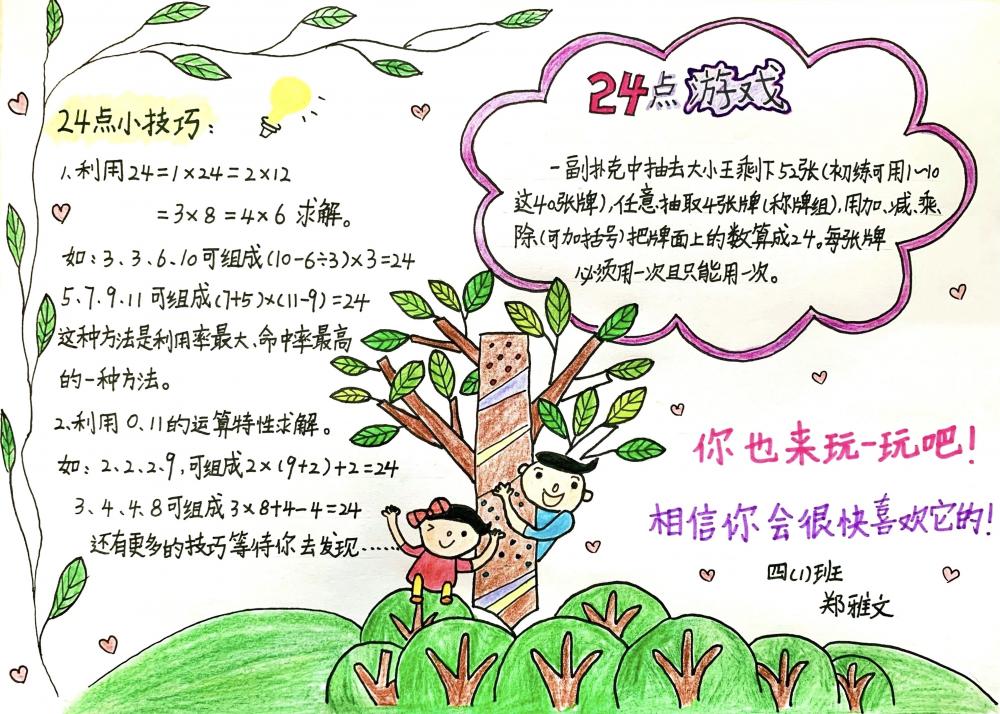 24点小技巧：
1、利用24=1×24=2×12
=3×8=4×6 求解。
如：3、3、6、10可组成(10-6÷3)×3=24
5、7、9、11可组成(7+5)×(11-9)=24
这种方法是利用率最大、命中率最高
的一种方法。
2、利用 0、11的运算特性求解。
如：2、2、2、9，可组成2×(9+2)+2=24
3、4、4、8可组成3×8+4-4=24
还有更多的技巧等待你去发现……
24点游戏
一副扑克中抽去大小王剩下52张(初练可用1~10
这40张牌)，任意抽取4张牌(称牌组)，用加、减、乘、
除(可加括号)把牌面上的数算成24。每张牌
必须用一次且只能用一次。
你也来玩一玩吧！
相信你会很快喜欢它的！
四(1)班
郑雅文